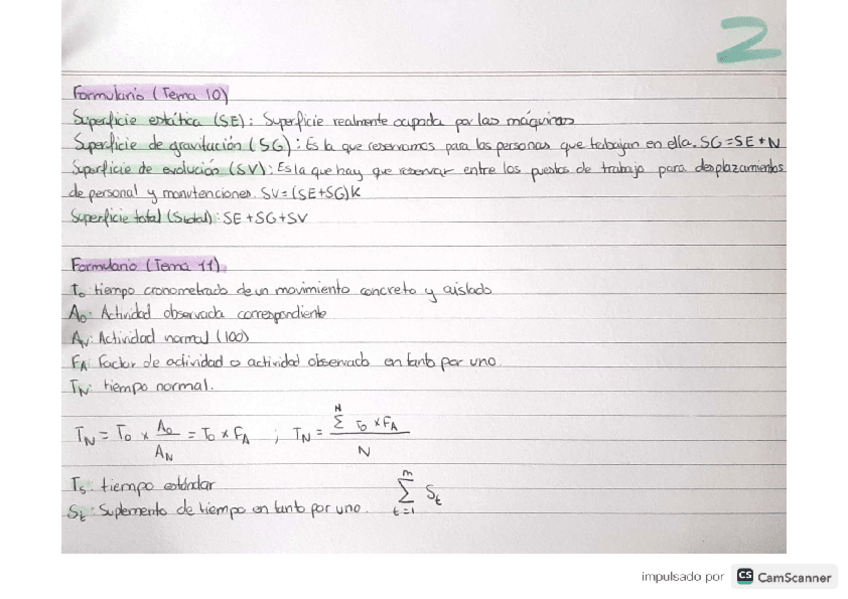 2
Formulario (Tema 10)
Superficie estática (SE): Superficie realmente ocupada por las máquinas
Superficie de gravitación (SG): Es la que reservamos para las personas que trabajan en ella. SG=SE*N
Superficie de evolución (SV): Es la que hay que reservar entre los puestos de trabajo para desplazamientos
de personal y manutenciones. SV=(SE+SG)K
Superficie total (Stotal): SE+SG+SV
Formulario (Tema 11)
To tiempo cronometrado de un movimiento concreto y aislado
Ao: Actividad observada correspondiente
AN: Actividad normal (100)
FA: Factor de actividad o actividad observada en tanto por uno.
TN: tiempo normal.
TN = To × Ao/AN = To × FA ; TN = (N Σ To × FA)/N
Ts: tiempo estándar
St: Suplemento de tiempo en tanto por uno. m Σ t=1 St
impulsado por CS CamScanner